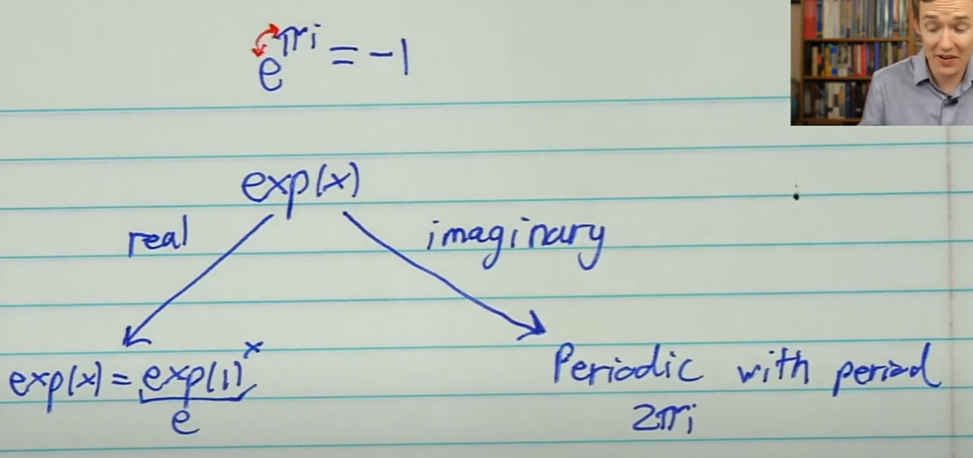 e^πi = -1
exp(x)
real
imaginary
exp(x) = exp(1)^x
e
Periodic with period
2πi